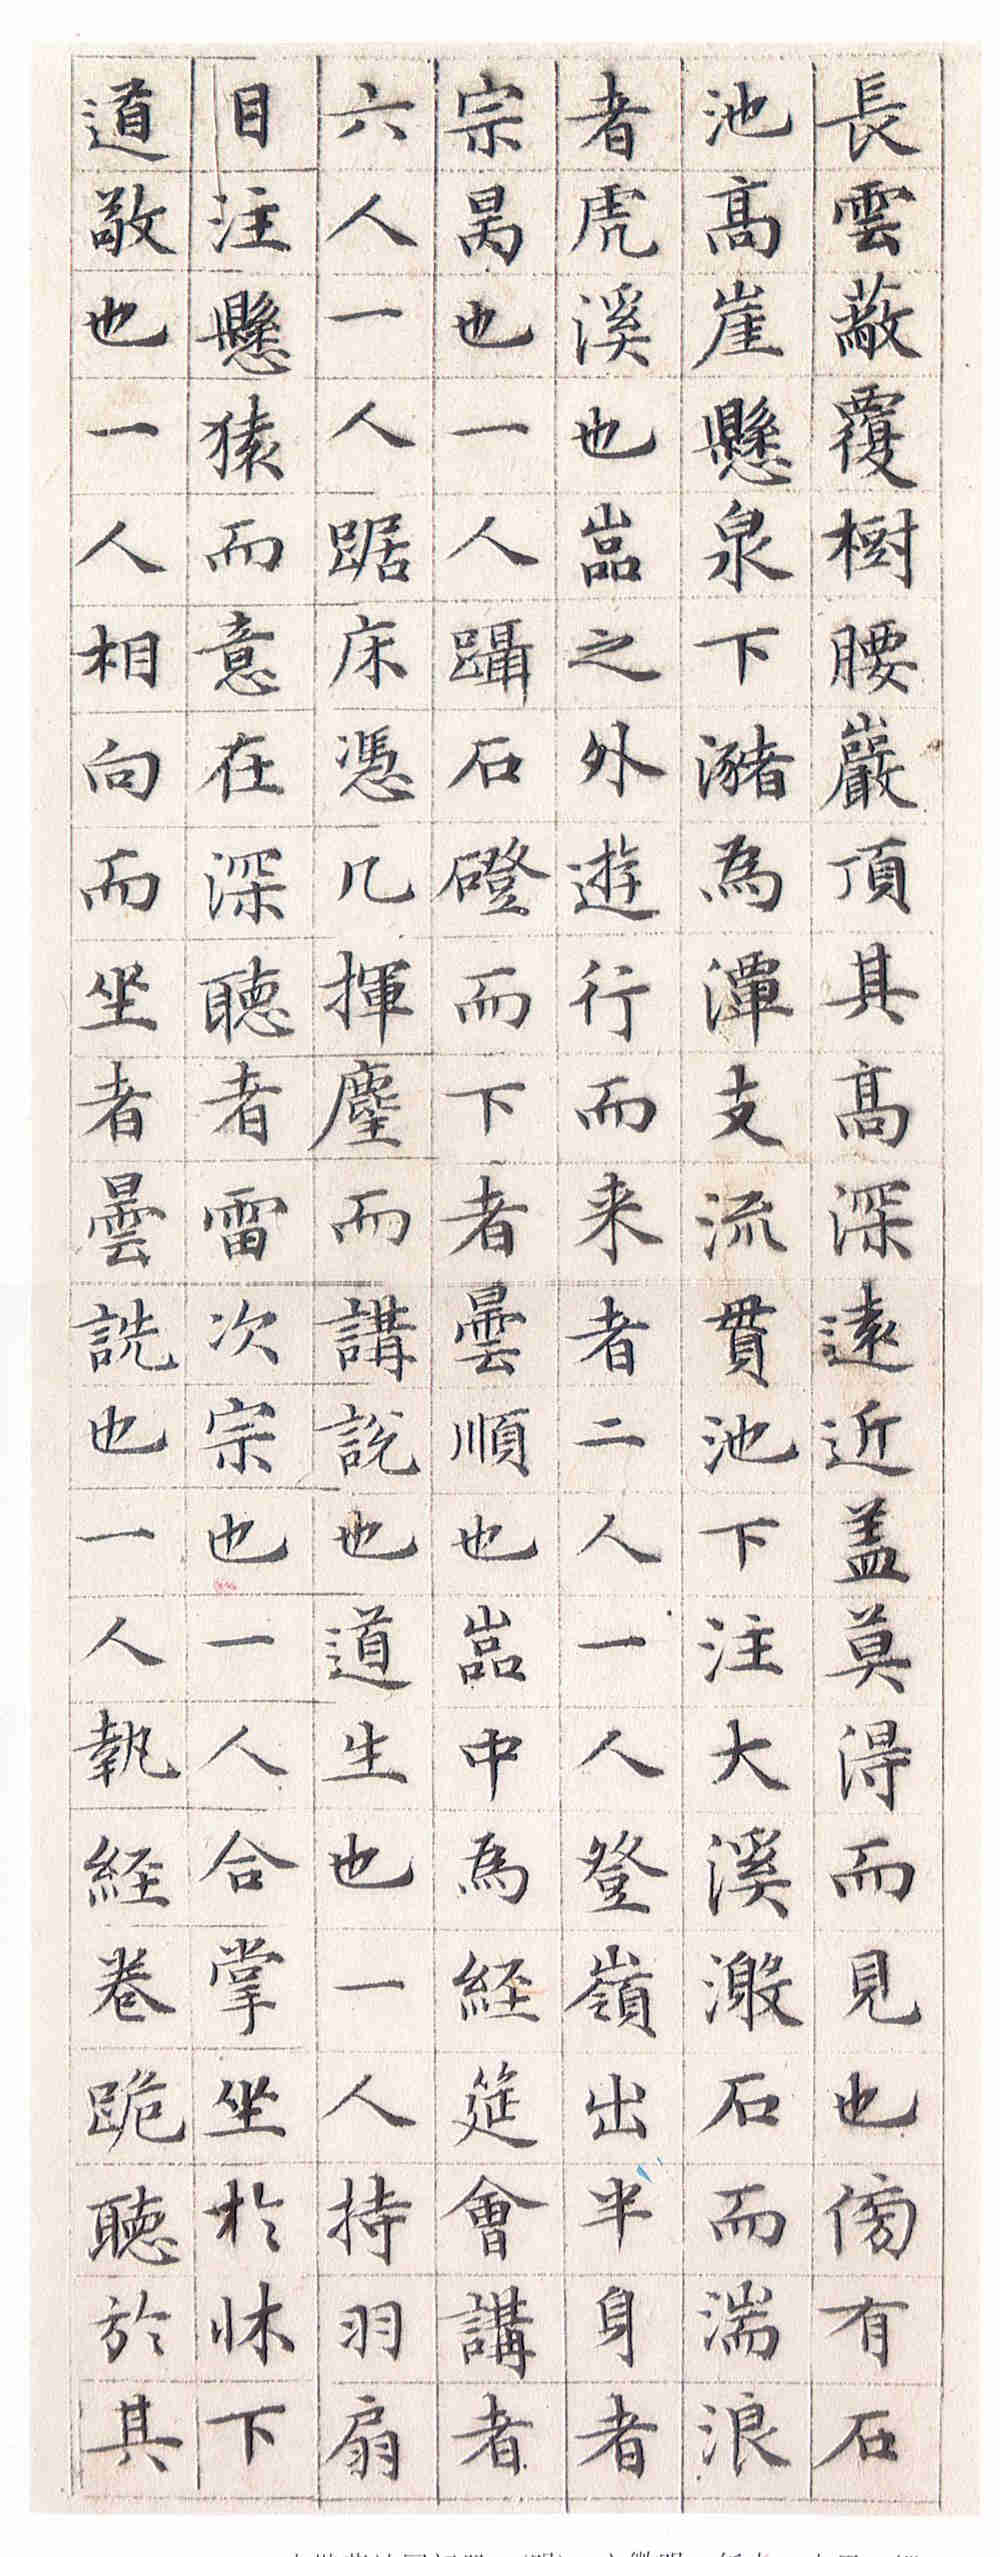 長雲蔽覆樹腰巖頂其高深遠近盖莫淂而見也傍有石
池高崖懸泉下瀦為潭支流貫池下注大溪激石而湍浪
者虎溪也嵓之外遊行而来者二人一人登嶺出半身者
宗昺也一人躡石磴而下者曇順也嵓中為經筵會講者
六人一人踞床憑几揮麈而講說也道生也一人持羽扇
目注懸猿而意在深聽者雷次宗也一人合掌坐於牀下
道敬也一人相向而坐者曇詵也一人執經卷跪聽於其